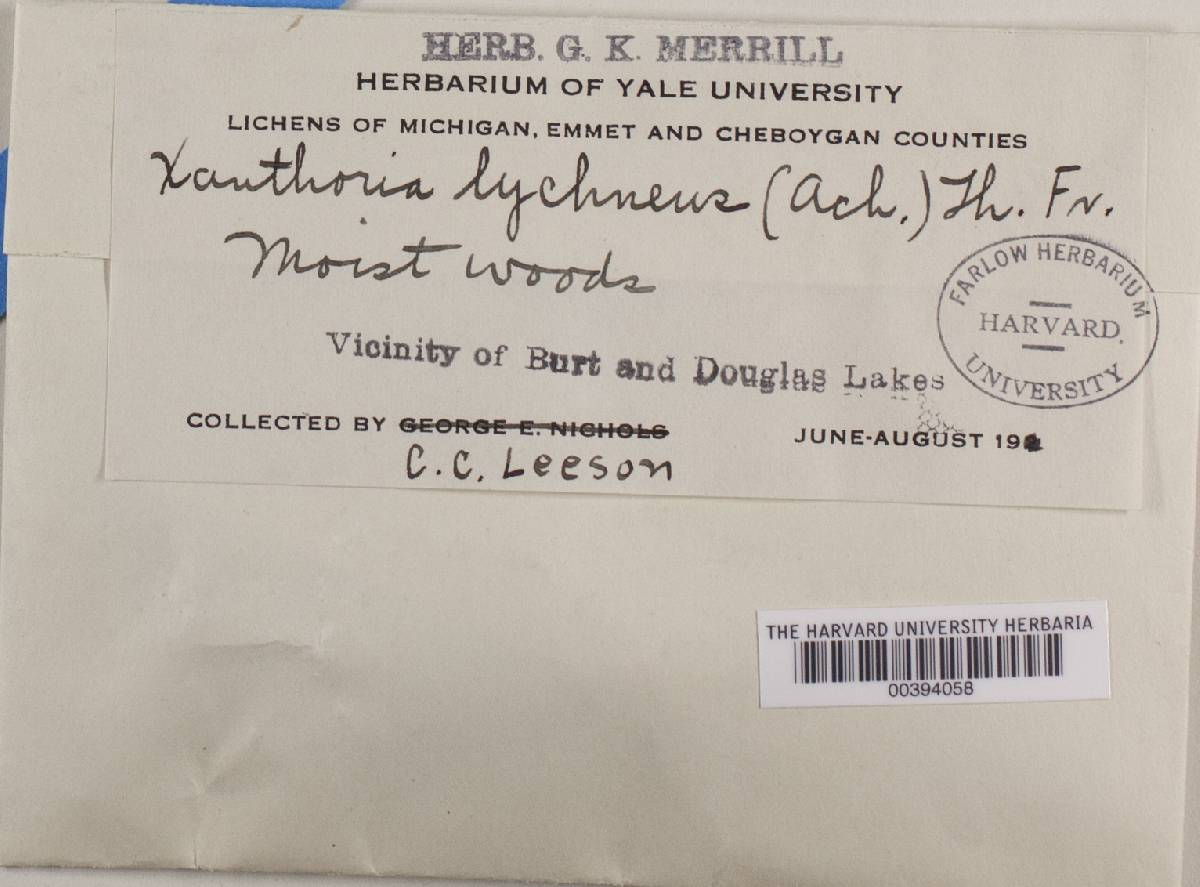 HERB. G. K. MERRILL
HERBARIUM OF YALE UNIVERSITY
LICHENS OF MICHIGAN, EMMET AND CHEBOYGAN COUNTIES
Xanthoria lychneus (Ach.) Th. Fr.
Moist woods
FARLOW HERBARIUM
HARVARD.
UNIVERSITY
Vicinity of Burt and Douglas Lakes
COLLECTED BY GEORGE E. NICHOLS
JUNE-AUGUST 192
C. C. Leeson
THE HARVARD UNIVERSITY HERBARIA
00394058